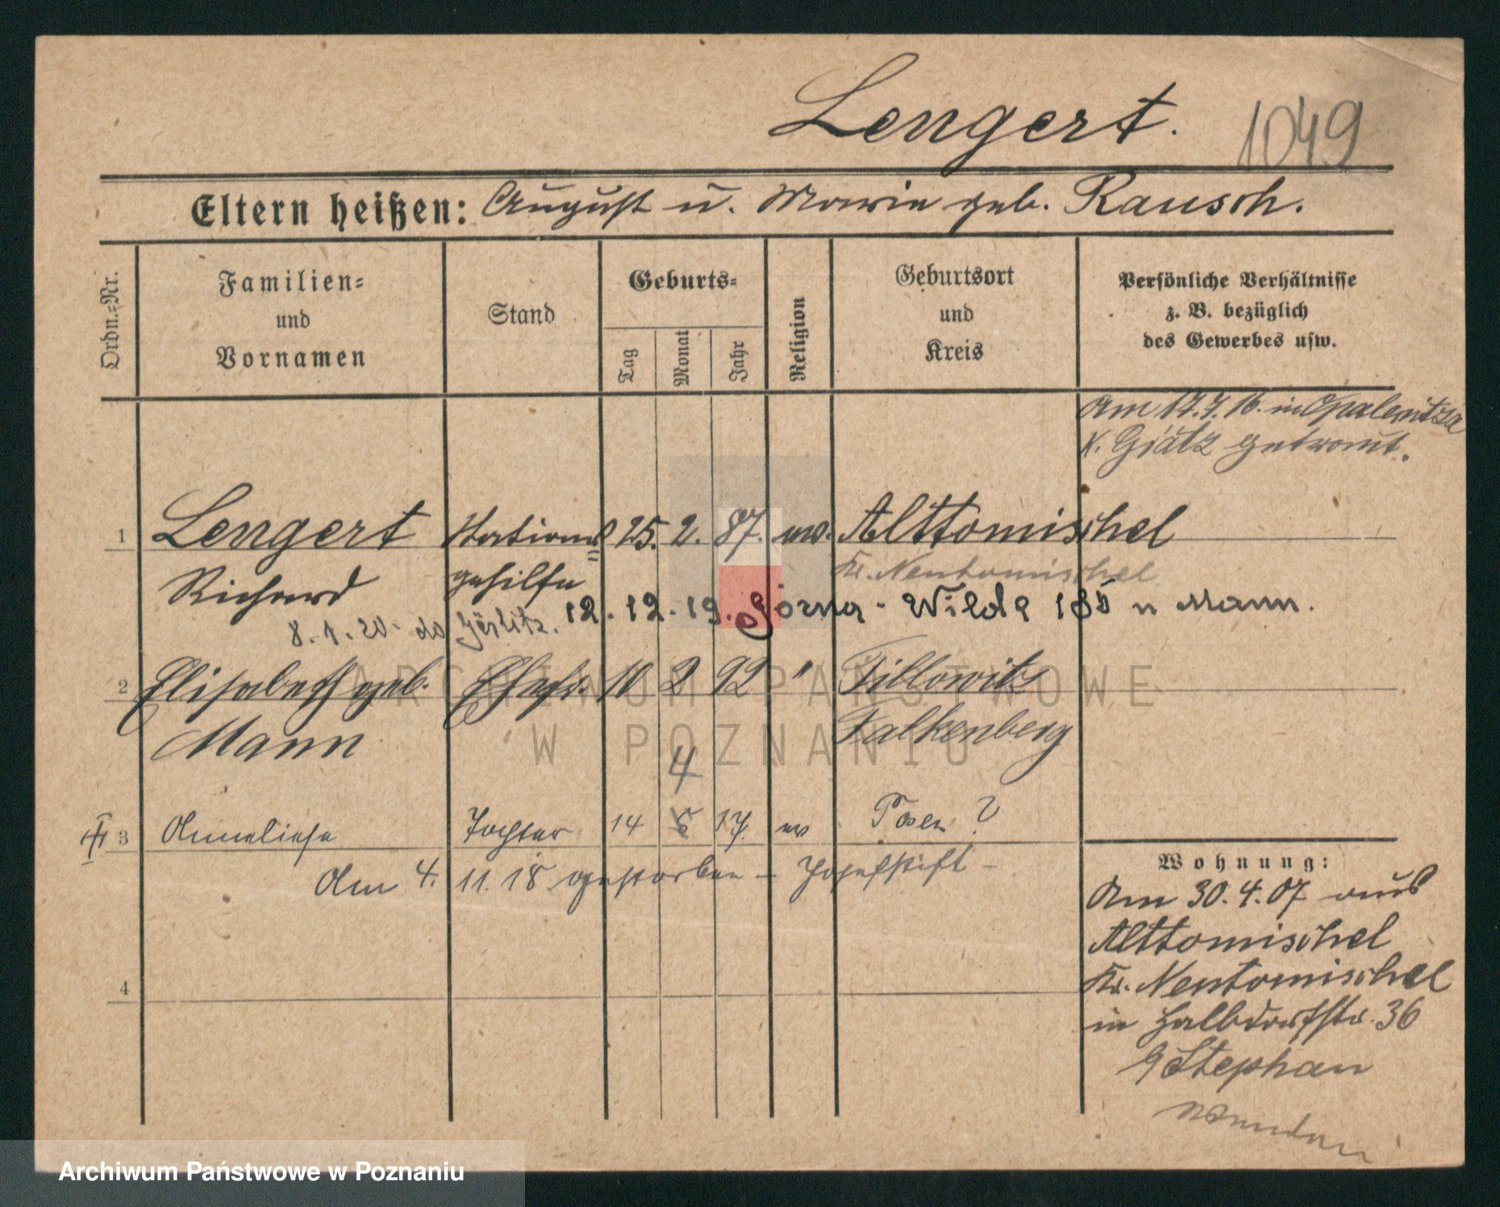 Lengert.
1049
Eltern heißen: August u. Marie geb. Rausch.
Ordn.=Nr.
Familien=
und
Vornamen
Stand
Geburts=
Tag
Monat
Jahr
Religion
Geburtsort
und
Kreis
Persönliche Verhältnisse
z. B. bezüglich
des Gewerbes usw.
Am 17.7.16. in Opalenitza
K. Grätz getraut.
1 Lengert Stations 25. 2. 87. ev. Alttomischel
Kr. Neutomischel
Richard gehilfe
12.12.19. Górna-Wilda 180 n Mann.
8.1.20. Görlitz.
2 Elisabeth geb. Ehefr. 10 2 92 " Tillowitz
Mann Falkenberg
4
3 Anneliese Tochter 14 5 17. ev Posen ?
Am 4. 11. 18 gestorben – Josefstift –
4
Wohnung:
Am 30.4.07 aus
Alttomischel
Kr. Neutomischel
in Halbdorfstr. 36
Stephan
ARCHIWUM PAŃSTWOWE
W POZNANIU
Archiwum Państwowe w Poznaniu